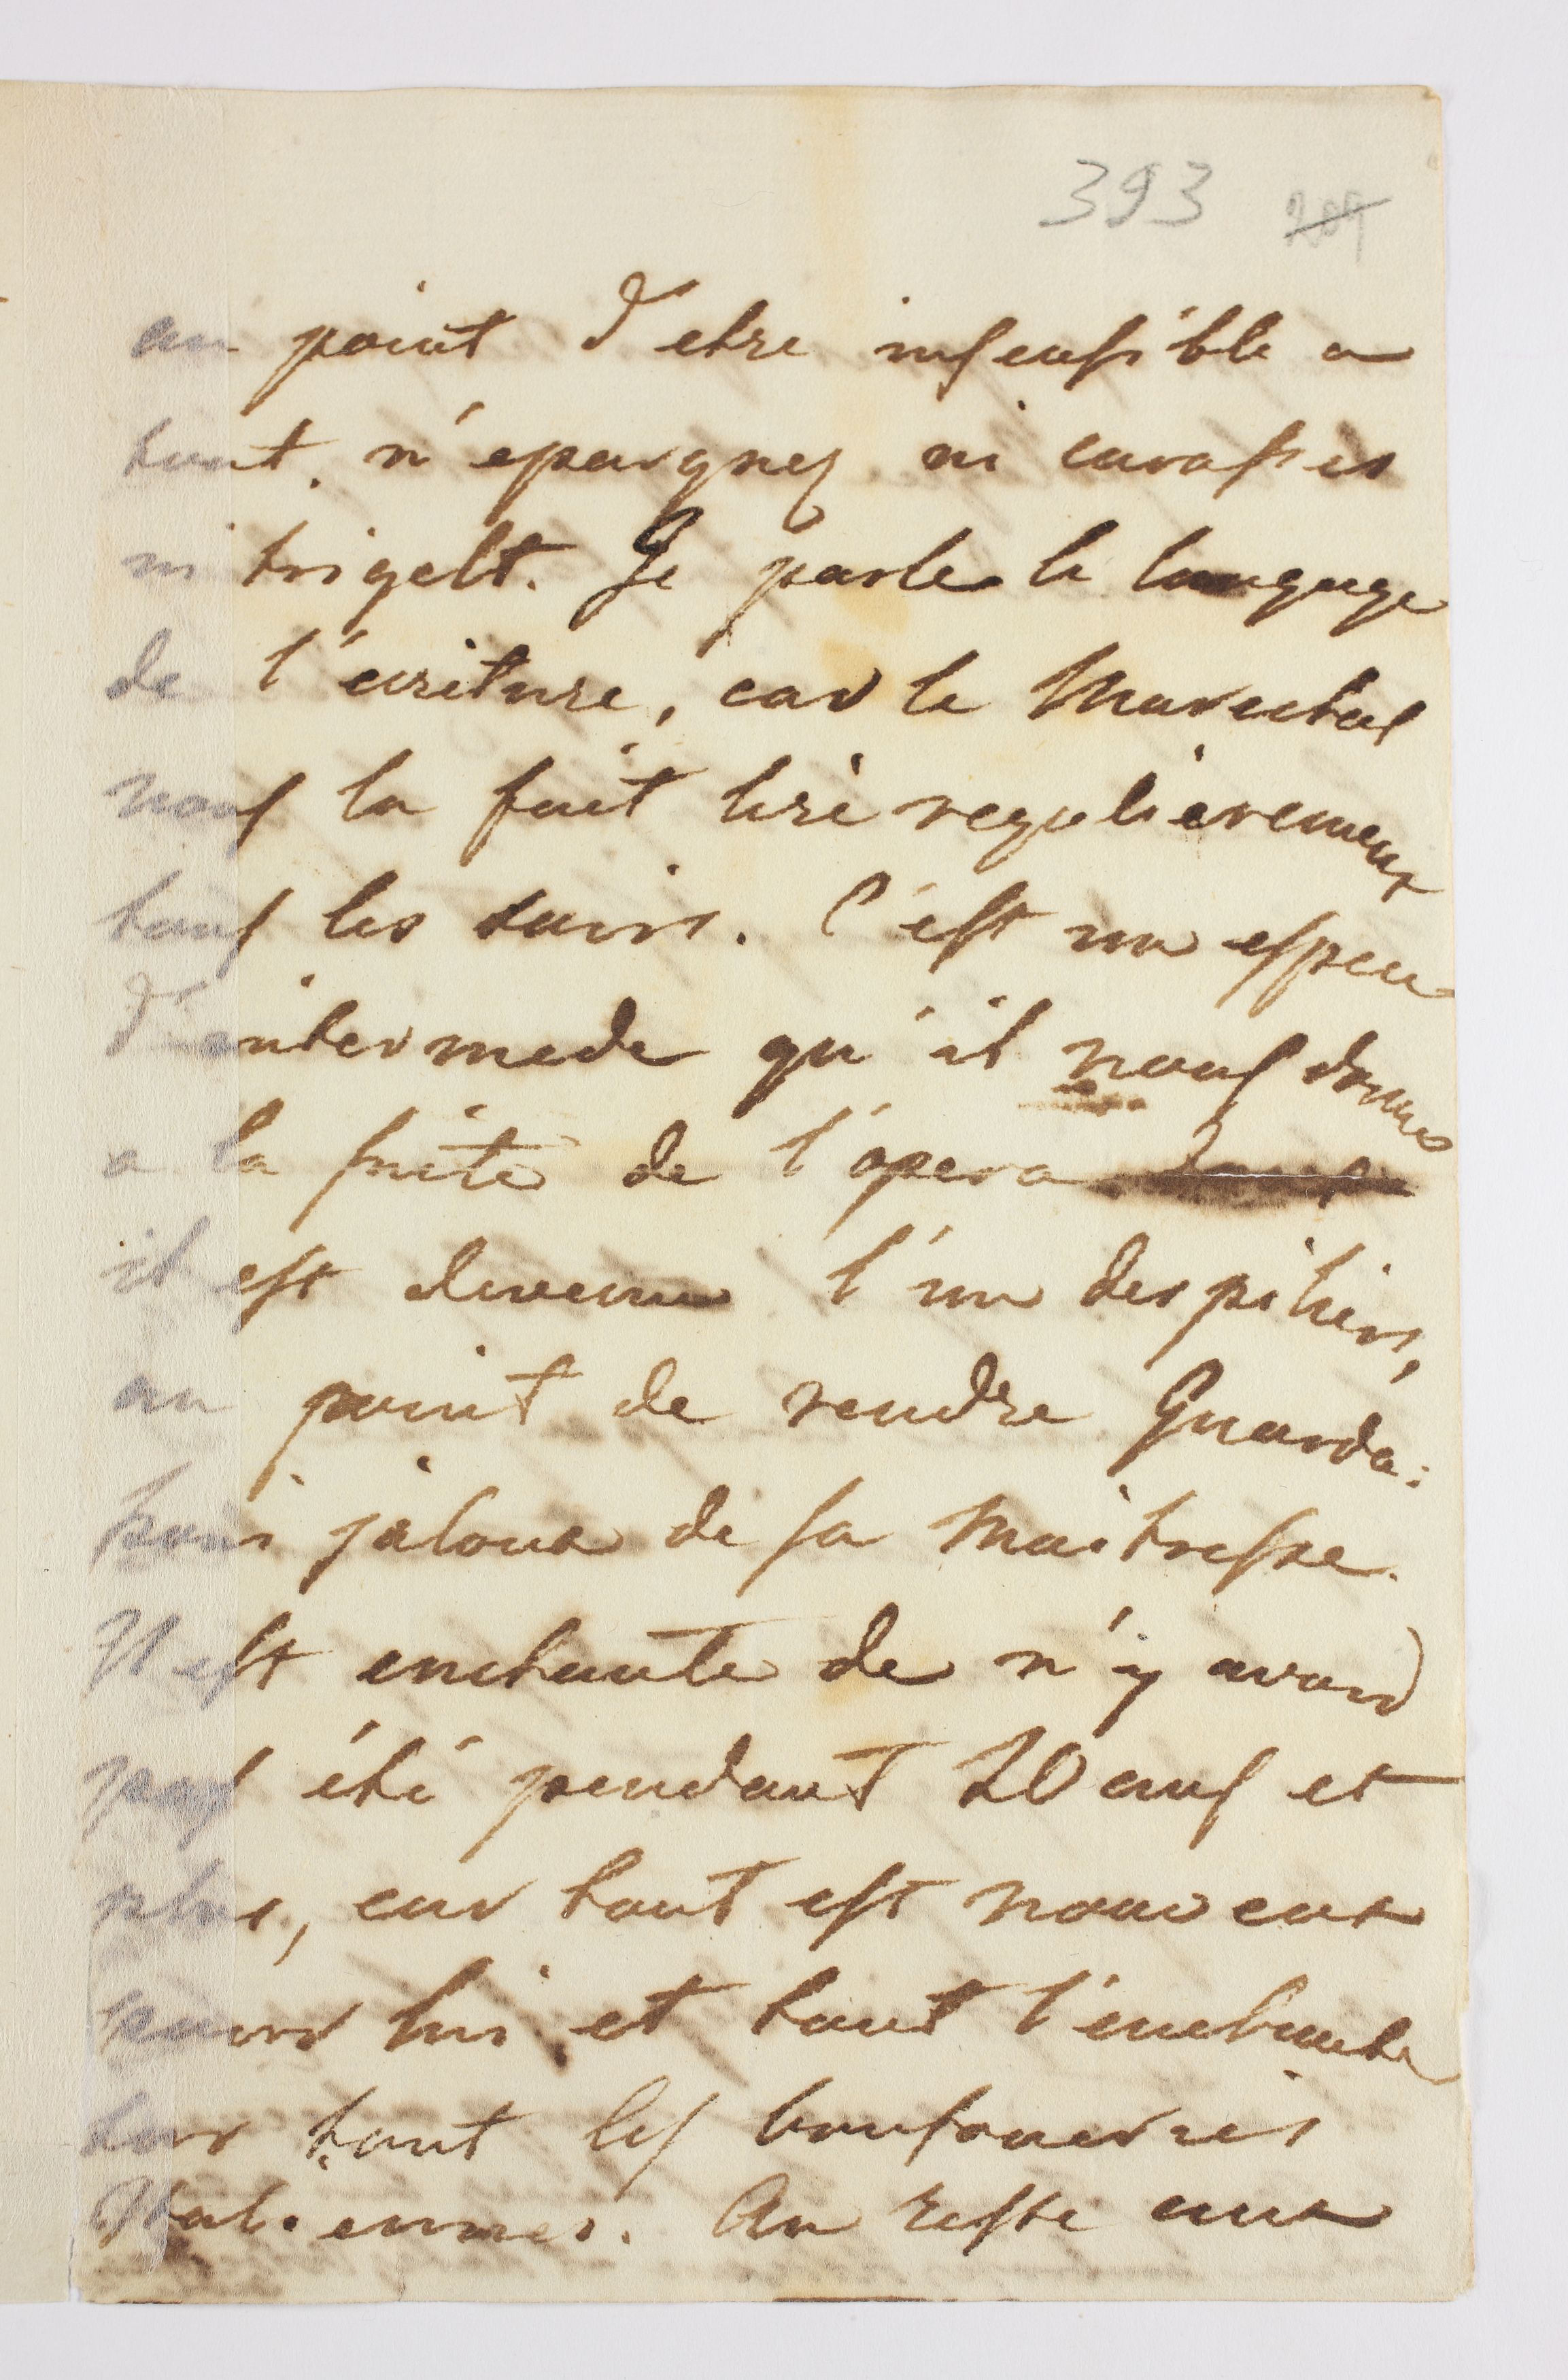 393 209
au point d'etre insensible a
tout. n'epargnez ni caresses
ni trigelt. Je parle le language
de l'ecriture, car le Marechal
nous la fait lire regulierement
tous les soirs. C'est un espece
d'intermede qu'il nous donne
a la suite de l'opera
il est devenu l'un des piliers,
au point de rendre Guarda:
soni jaloux de sa Maitresse.
Il est enchanté de n'y avoir
pas été pendant 20 ans et
plus, car tout est nouveau
pour lui et tout l'enchante
sur tout les boufoneries
Italiennes. Au reste aux